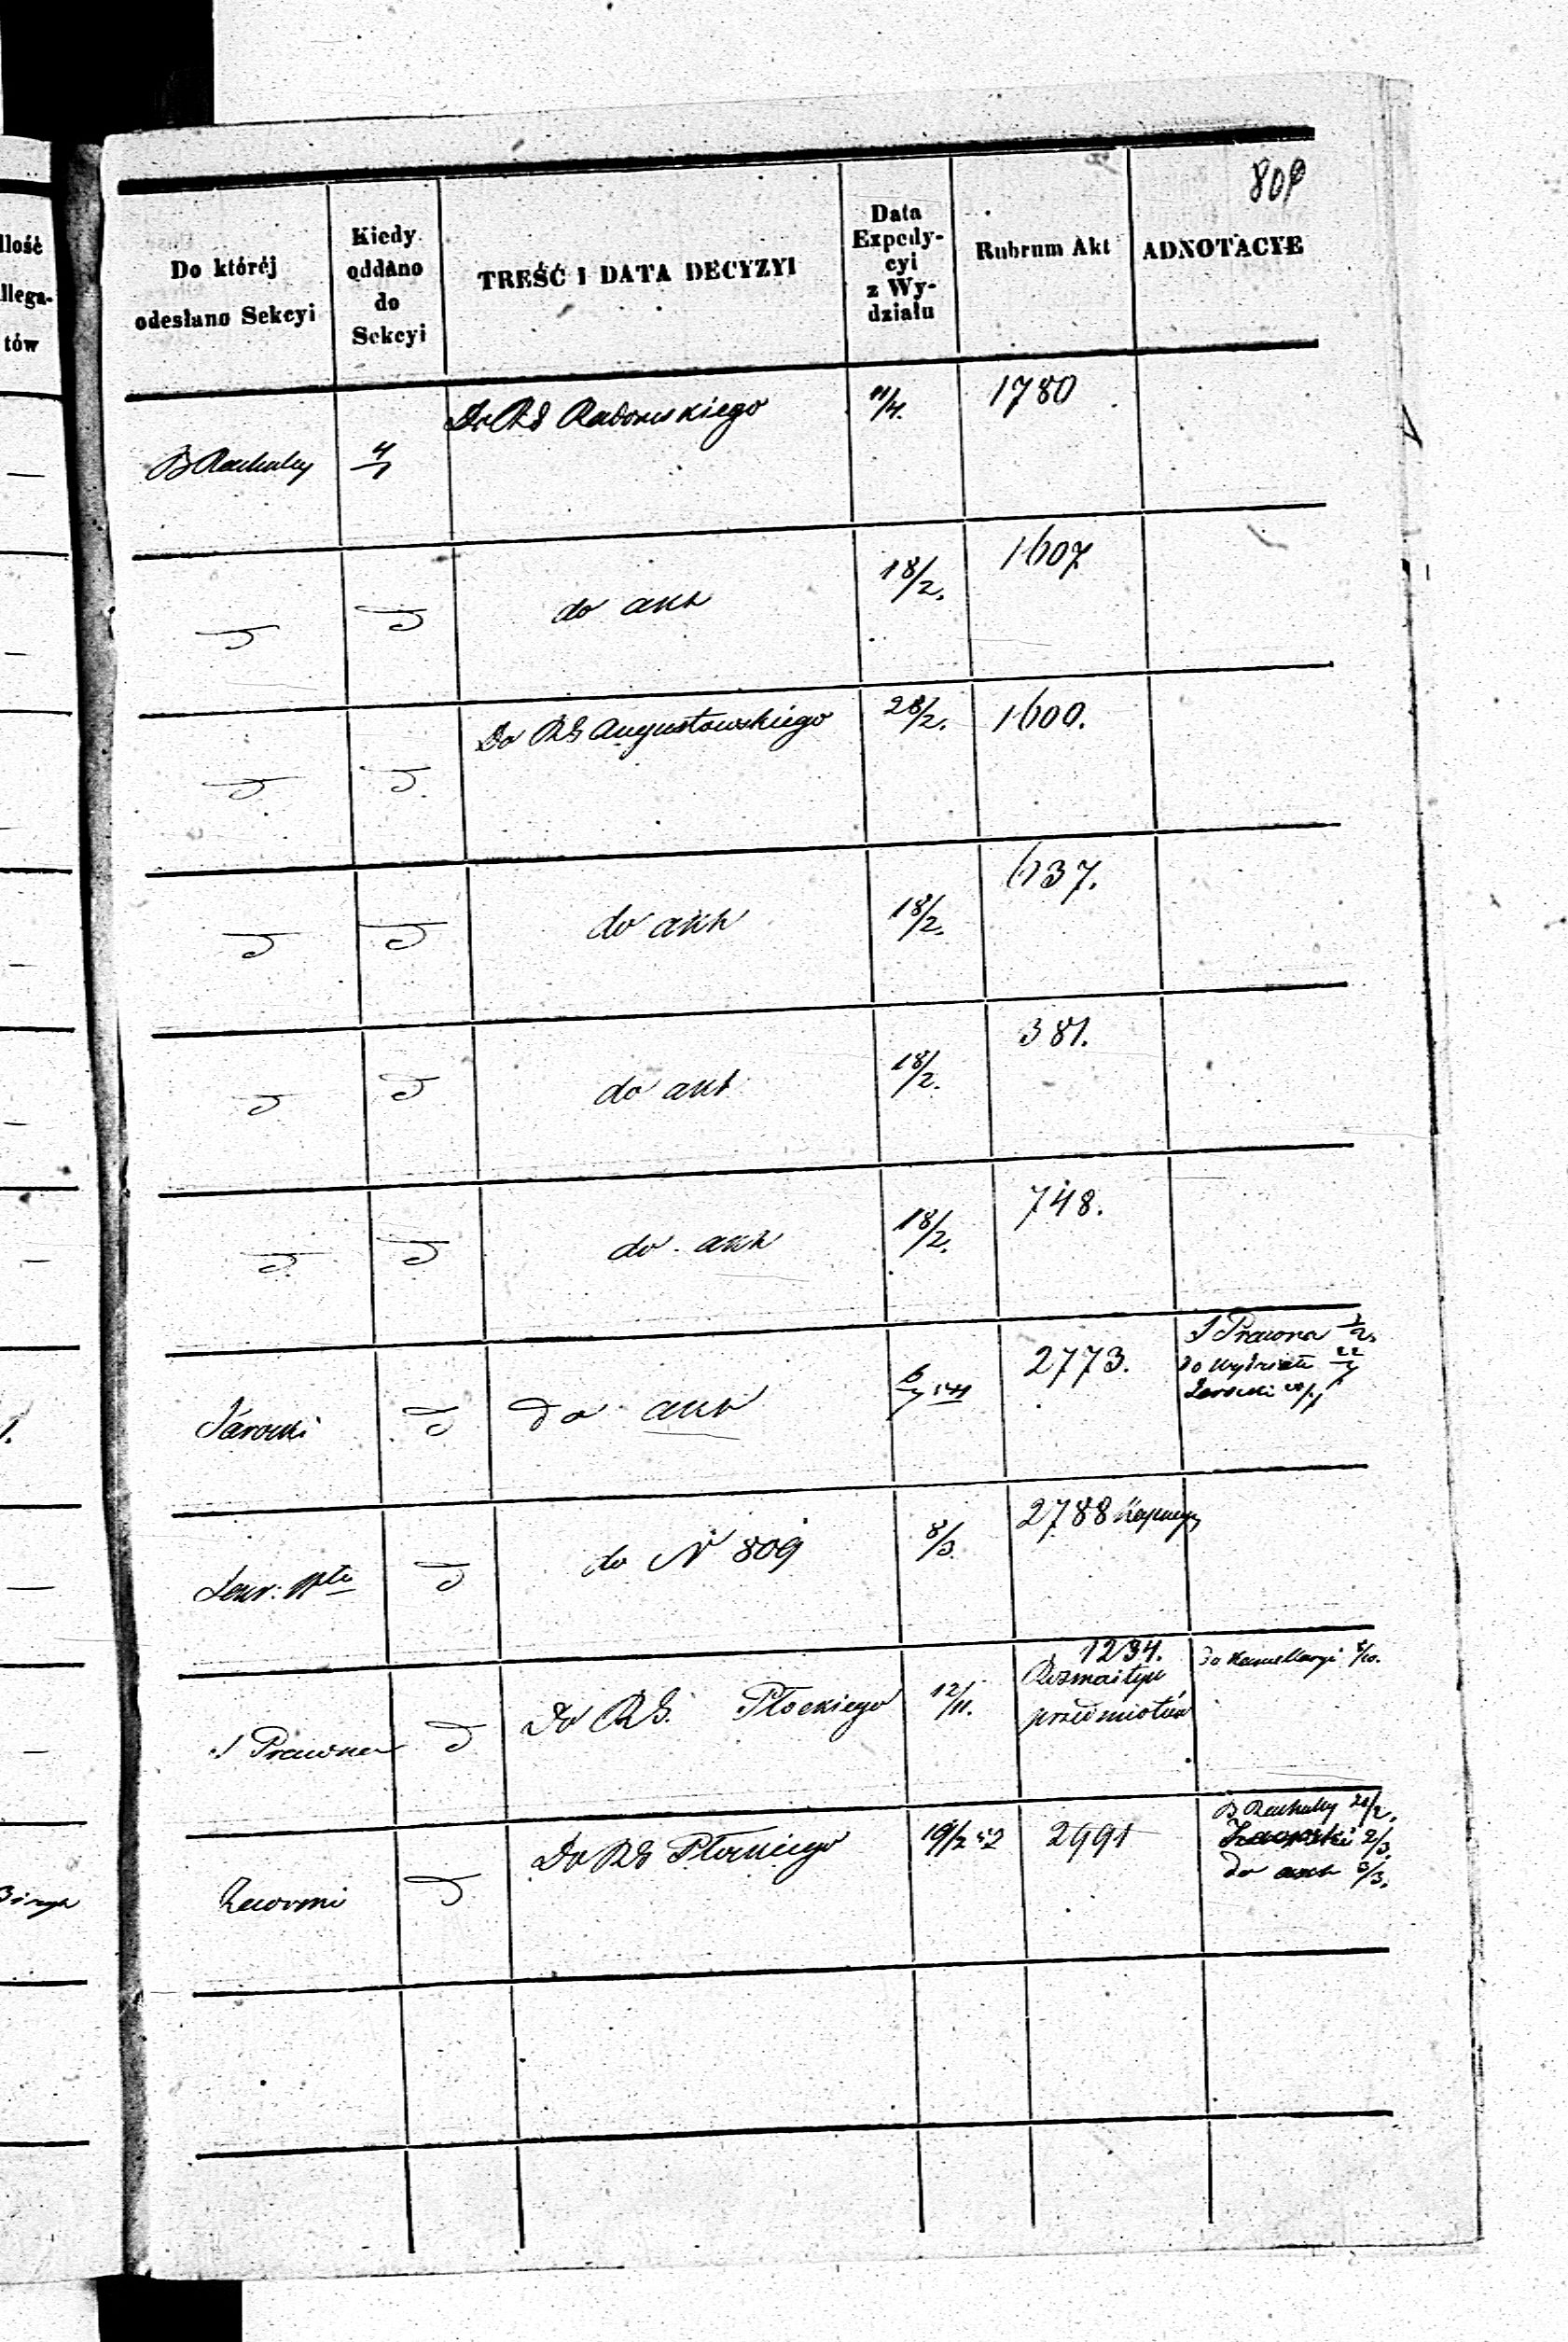 809
Ilość
Allega-
tów
Do któréj
odesłano Sekcyi
Kiedy
oddano
do
Sekcyi
TREŚĆ I DATA DECYZYI
Data
Expedy-
cyi
z Wy-
działu
Rubrum Akt
ADNOTACYE
B Rachuby
Do RG Radomskiego
11/4.
1780
do akt
18/2.
1607
Do RG Augustowskiego
28/2.
1600.
do akt
18/2.
637.
do akt
18/2.
381.
do akt
18/2.
748.
Jarocki
do akt
2773.
S Prawna
do Wydziału
do N 809
8/3.
2788
S Prawna
Do RG. Płockiego
12/11.
1234.
Rozmaitych
przedmiotów
do Kancellaryi 8/10.
Do RG Płockiego
19/2 52
2991
B Rachuby
2/3.
do akt 3/3.